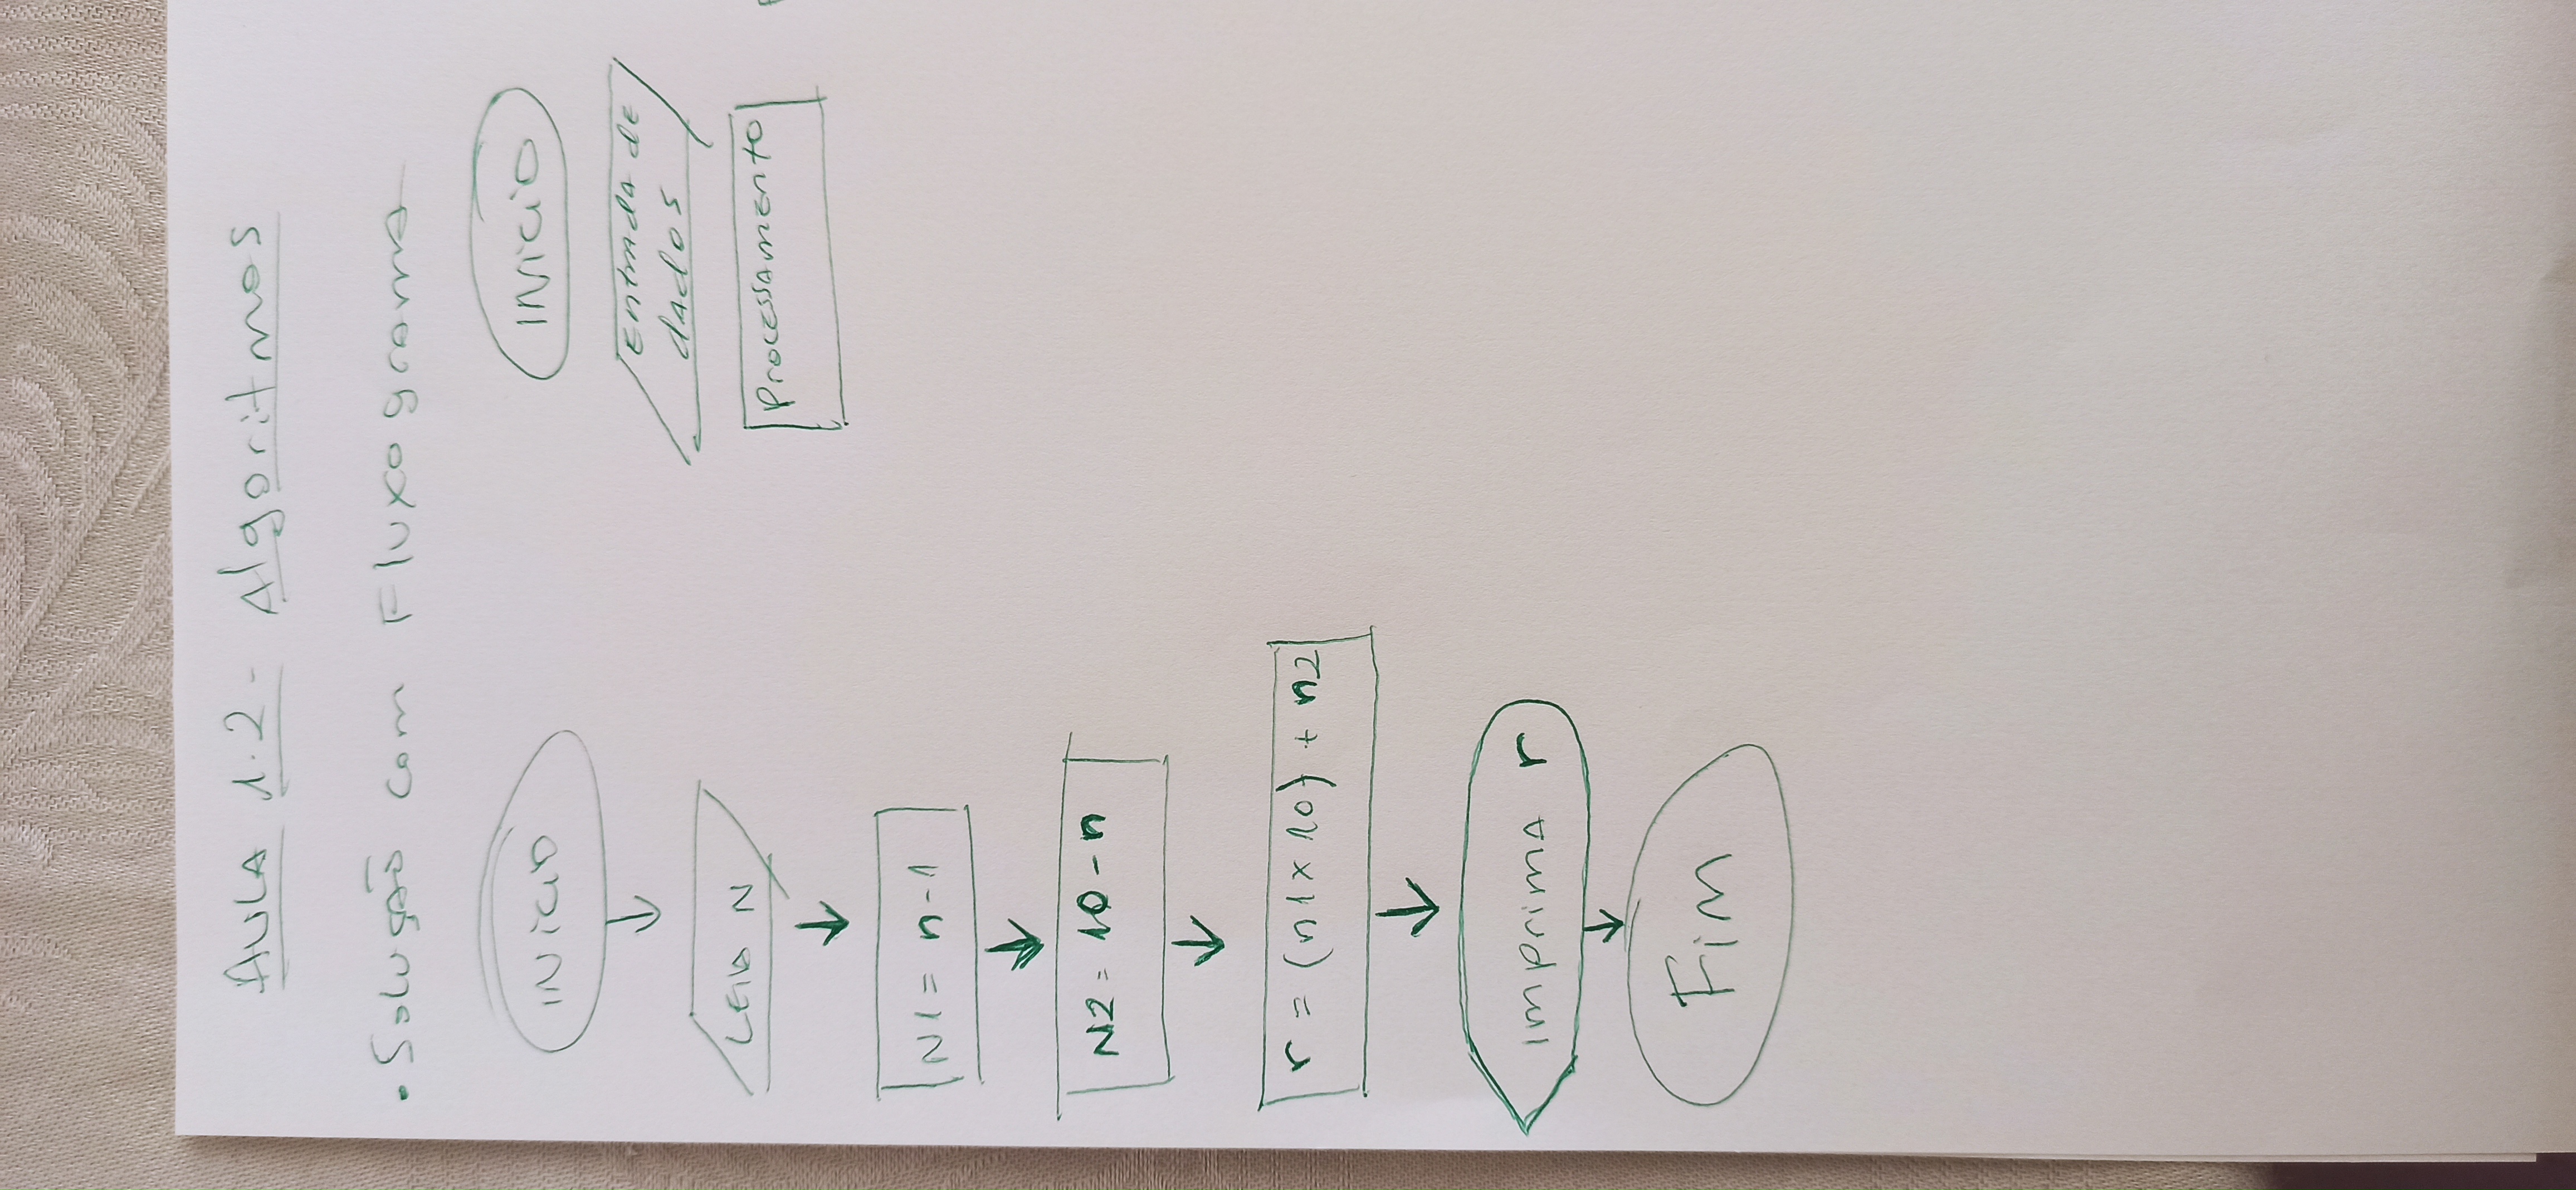 AULA 1.2 - Algoritmos
• Solução com Fluxograma
INICIO
LEIA N
N1 = n-1
N2 = 10 - n
r = (n1 x 10) + n2
imprima r
Fim
INICIO
Entrada de
dados
Processamento